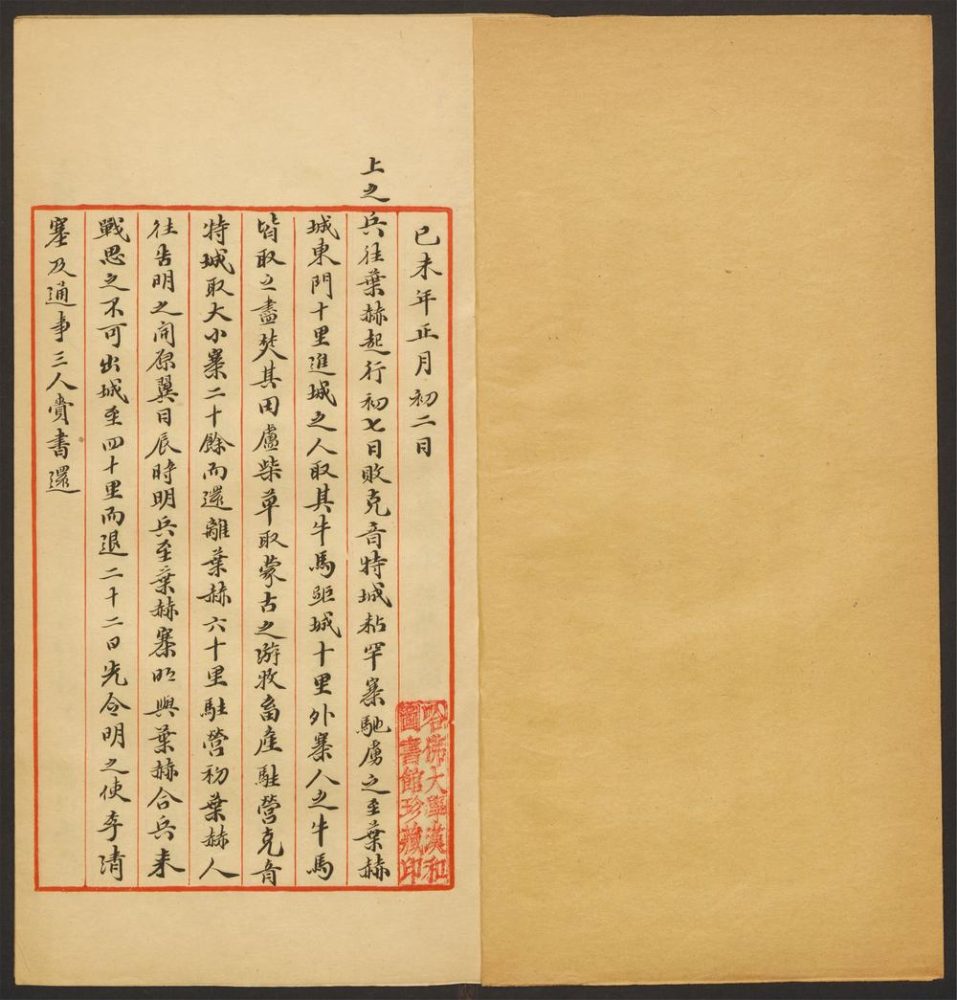 己未年正月初二日
上之兵往葉赫起行初七日敗克音特城粘罕寨馳虜之至葉赫
城東門十里進城之人取其牛馬距城十里外寨人之牛馬
皆取之盡焚其田廬柴草取蒙古之游牧畜產駐營克音
特城取大小寨二十餘而還離葉赫六十里駐營初葉赫人
往告明之開原翼日辰時明兵至葉赫寨明與葉赫合兵來
戰思之不可出城至四十里而退二十二日先令明之使李清
塞及通事三人賫書還
哈佛大學漢和
圖書館珍藏印